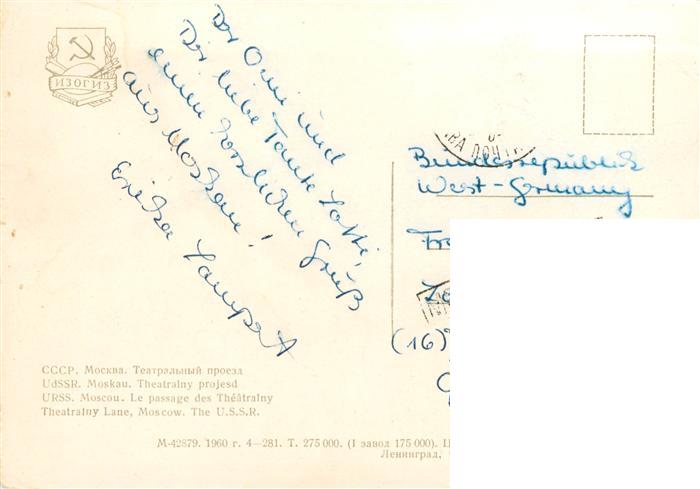 ИЗОГИЗ
Der Omi und
Dir liebe Tante Lotti,
einen herzlichen Gruß
aus Moskau!
Erika
Bundesrepublik
West-Germany
(16)
СССР. Москва. Театральный проезд
UdSSR. Moskau. Theatralny projesd
URSS. Moscou. Le passage des Théâtralny
Theatralny Lane, Moscow. The U.S.S.R.
М-42879. 1960 г. 4—281. Т. 275 000. (I завод 175 000). Ц
Ленинград,